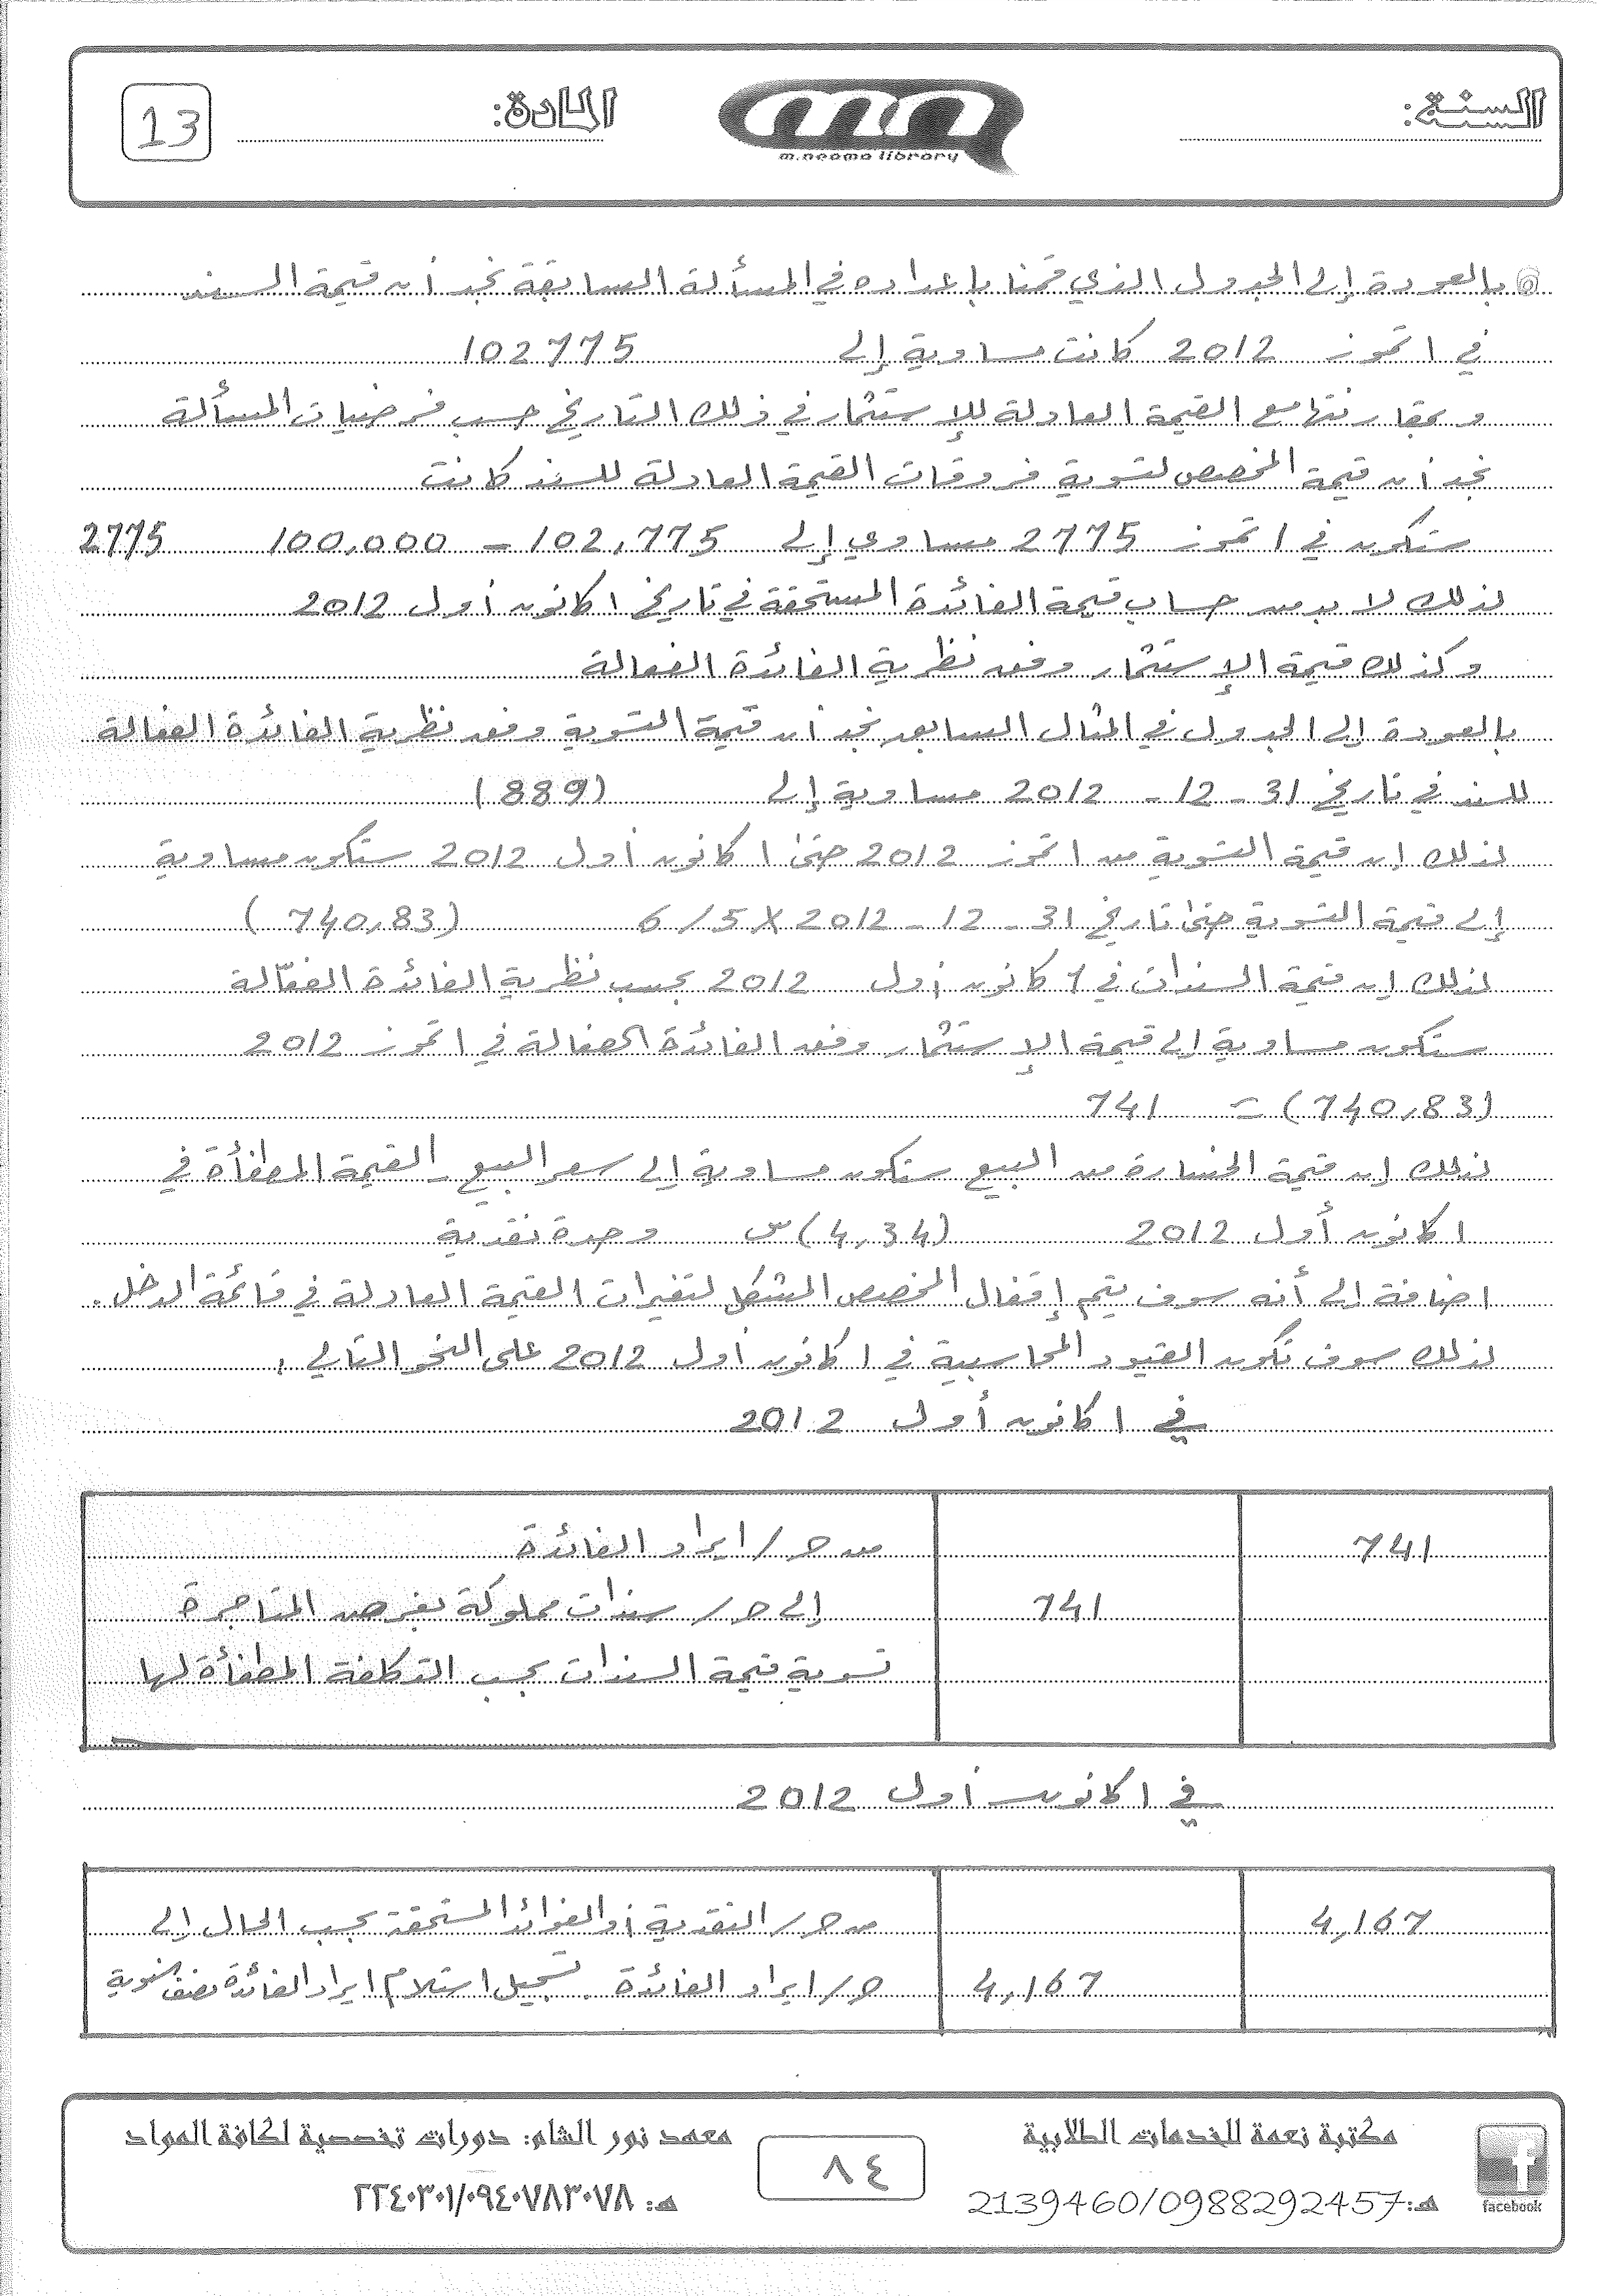 السنة:
المادة:
13
m.neama library
بالعودة إلى الجدول الذي قمنا بإعداده في المسألة السابقة نجد أن قيمة السند
في 1 تموز 2012 كانت مساوية إلى 102775
و بمقارنتها مع القيمة العادلة للإستثمار في ذلك التاريخ حسب فرضيات المسألة
نجد أن قيمة المخصص لتسوية فروقات القيمة العادلة للسند كانت
ستكون في 1 تموز 2775 مساوي إلى 102,775 - 100,000 2775
لذلك لا بد من حساب قيمة الفائدة المستحقة في تاريخ 1 كانون أول 2012
وكذلك قيمة الإستثمار وفق نظرية الفائدة الفعالة
بالعودة إلى الجدول في المثال السابق نجد أن قيمة التسوية وفق نظرية الفائدة الفعالة
للسند في تاريخ 31 - 12 - 2012 مساوية إلى (889)
لذلك إن قيمة التسوية من 1 تموز 2012 حتى 1 كانون أول 2012 ستكون مساوية
إلى قيمة التسوية حتى تاريخ 31 - 12 - 2012 X 5 / 6 (740,83)
لذلك إن قيمة السندات في 1 كانون أول 2012 بحسب نظرية الفائدة الفعّالة
ستكون مساوية إلى قيمة الإستثمار وفق الفائدة الفعالة في 1 تموز 2012
(740,83) = 741
لذلك إن قيمة الخسارة من البيع ستكون مساوية إلى سعر البيع - القيمة المطفأة في
1 كانون أول 2012 (4,34) س وحدة نقدية
اضافة إلى أنه سوف يتم إقفال المخصص المشكل لتغيرات القيمة العادلة في قائمة الدخل.
لذلك سوف تكون القيود المحاسبية في 1 كانون أول 2012 على النحو التالي :
في 1 كانون أول 2012
741 من حـ/ ايراد الفائدة
741 إلى حـ/ سندات مملوكة بغرض المتاجرة
تسوية قيمة السندات بحسب التكلفة المطفأة لها
في 1 كانون أول 2012
4,167 من حـ/ النقدية أو الفوائد المستحقة بحسب الحال إلى
4,167 حـ/ ايراد الفائدة . تسجيل استلام ايراد الفائدة نصف سنوية
facebook
مكتبة نعمة للخدمات الطلابية
هـ: 2139460/0988292457
٨٤
معهد نور الشام: دورات تخصصية لكافة المواد
هـ: ٢٢٤٠٣٠١/٠٩٤٠٧٨٣٠٧٨